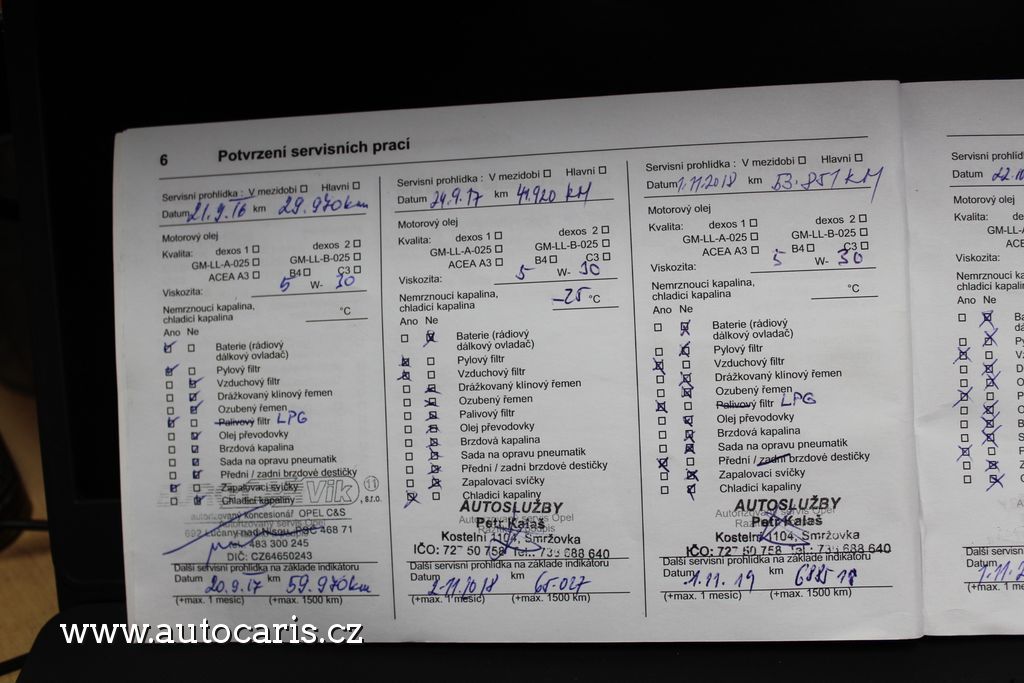 6 Potvrzení servisních prací
Servisní prohlídka : V mezidobí Hlavní
Datum 21.9.16 km 29.970km
Motorový olej
Kvalita: dexos 1 dexos 2
GM-LL-A-025 GM-LL-B-025
ACEA A3 B4 C3
Viskozita: 5 W- 30
Nemrznoucí kapalina,
chladicí kapalina °C
Ano Ne
Baterie (rádiový
dálkový ovladač)
Pylový filtr
Vzduchový filtr
Drážkovaný klínový řemen
Ozubený řemen
Palivový filtr LPG
Olej převodovky
Brzdová kapalina
Sada na opravu pneumatik
Přední / zadní brzdové destičky
Zapalovací svíčky
Chladicí kapaliny
Vik 11
, s.r.o.
autorizovaný koncesionář OPEL C&S
Lučany nad Nisou, PSČ 468 71
tel. 483 300 245
DIČ: CZ64650243
Další servisní prohlídka na základě indikátoru
Datum 20.9.17 km 59.970km
(+max. 1 měsíc) (+max. 1500 km)
Servisní prohlídka : V mezidobí Hlavní
Datum 24.9.17 km 41.920 KM
Motorový olej
Kvalita: dexos 1 dexos 2
GM-LL-A-025 GM-LL-B-025
ACEA A3 B4 C3
Viskozita: 5 W- 30
Nemrznoucí kapalina,
chladicí kapalina -25 °C
Ano Ne
Baterie (rádiový
dálkový ovladač)
Pylový filtr
Vzduchový filtr
Drážkovaný klínový řemen
Ozubený řemen
Palivový filtr
Olej převodovky
Brzdová kapalina
Sada na opravu pneumatik
Přední / zadní brzdové destičky
Zapalovací svíčky
Chladicí kapaliny
AUTOSLUŽBY
Autorizovaný servis Opel
Petr Kalaš
Kostelní 1104, Smržovka
IČO: 72 50 758 Tel.: 736 688 640
Další servisní prohlídka na základě indikátoru
Datum km 65.027
(+max. 1 měsíc) (+max. 1500 km)
Servisní prohlídka : V mezidobí Hlavní
Datum 1.11.2018 km 53.851 KM
Motorový olej
Kvalita: dexos 1 dexos 2
GM-LL-A-025 GM-LL-B-025
ACEA A3 B4 C3
Viskozita: 5 W- 30
Nemrznoucí kapalina,
chladicí kapalina °C
Ano Ne
Baterie (rádiový
dálkový ovladač)
Pylový filtr
Vzduchový filtr
Drážkovaný klínový řemen
Ozubený řemen
Palivový filtr LPG
Olej převodovky
Brzdová kapalina
Sada na opravu pneumatik
Přední / zadní brzdové destičky
Zapalovací svíčky
Chladicí kapaliny
AUTOSLUŽBY
Autorizovaný servis Opel
Petr Kalaš
Kostelní 1104, Smržovka
IČO: 72 50 758 Tel.: 736 688 640
Další servisní prohlídka na základě indikátoru
Datum 1.11.19 km
(+max. 1 měsíc) (+max. 1500 km)
Servisní
Datum
Motorový olej
Kvalita:
GM-
Viskozita:
Nemrznoucí
chladicí kapalina
Ano Ne
Další servisní
Datum
(+max. 1
www.autocaris.cz